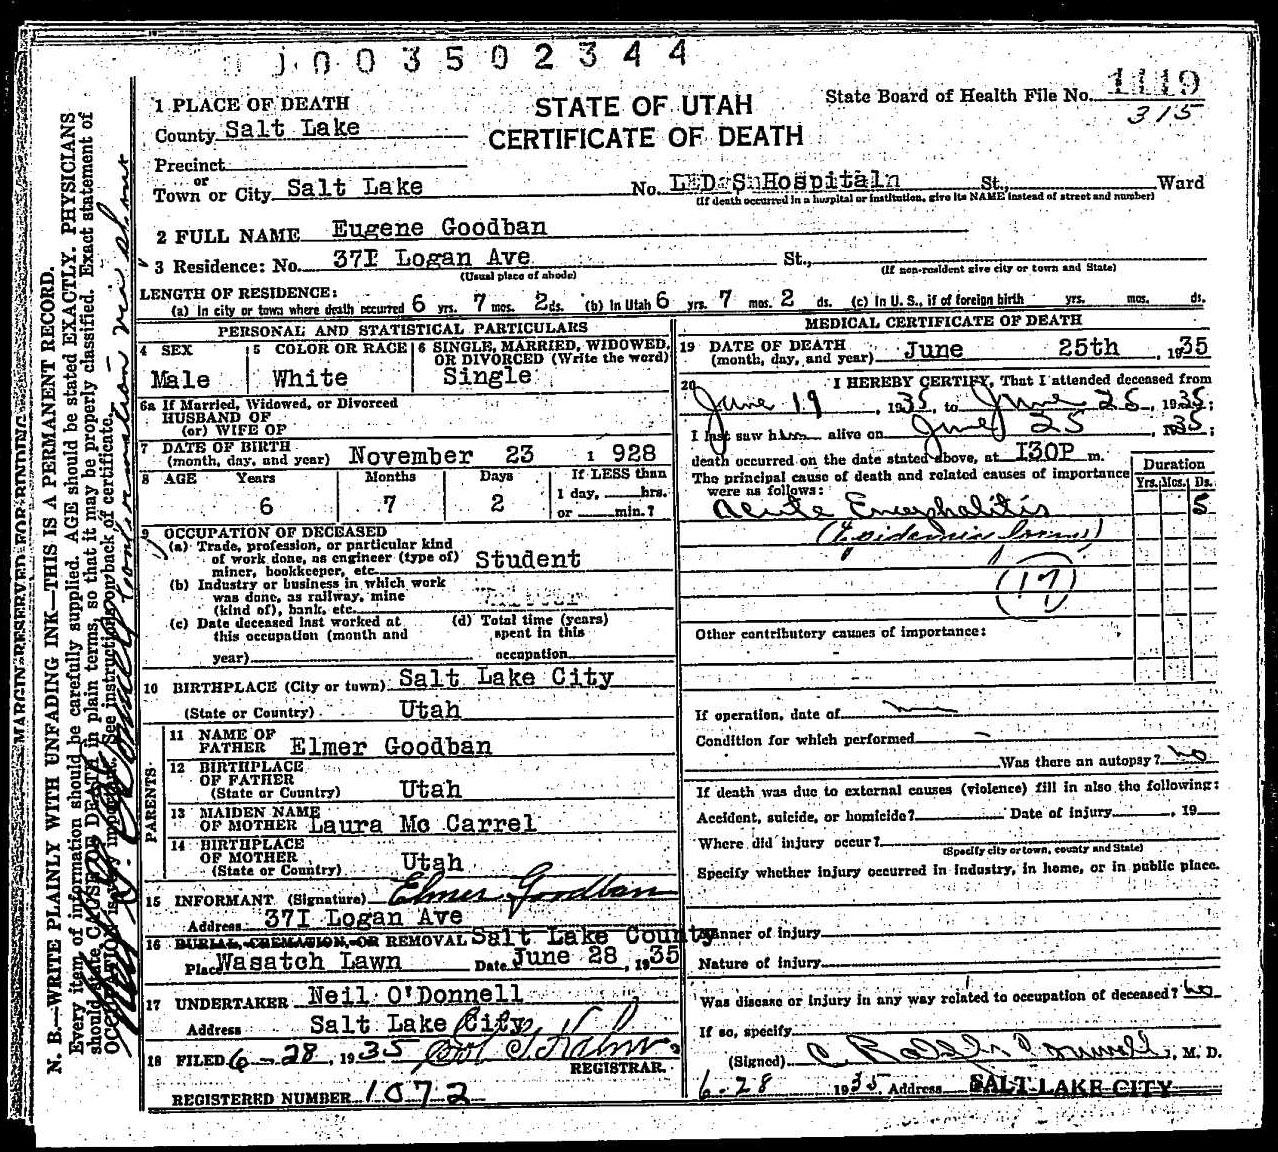 1003502344
1 PLACE OF DEATH
STATE OF UTAH
CERTIFICATE OF DEATH
State Board of Health File No. 1119
315
County Salt Lake
Precinct
or
Town or City Salt Lake No. L.D.S. Hospital St., Ward
(If death occurred in a hospital or institution, give its NAME instead of street and number)
2 FULL NAME Eugene Goodban
3 Residence: No. 371 Logan Ave St.,
(Usual place of abode) (If non-resident give city or town and State)
LENGTH OF RESIDENCE:
(a) In city or town where death occurred 6 yrs. 7 mos. 2 ds. (b) In Utah 6 yrs. 7 mos. 2 ds. (c) In U. S., if of foreign birth yrs. mos. ds.
PERSONAL AND STATISTICAL PARTICULARS
4 SEX
Male
5 COLOR OR RACE
White
6 SINGLE, MARRIED, WIDOWED, OR DIVORCED (Write the word)
Single
6a If Married, Widowed, or Divorced
HUSBAND OF
(or) WIFE OF
7 DATE OF BIRTH
(month, day, and year) November 23 1928
8 AGE Years Months Days If LESS than
6 7 2 1 day, hrs.
or min.?
9 OCCUPATION OF DECEASED
(a) Trade, profession, or particular kind
of work done, as engineer (type of)
miner, bookkeeper, etc. Student
(b) Industry or business in which work
was done, as railway, mine
(kind of), bank, etc.
(c) Date deceased last worked at
this occupation (month and
year)
(d) Total time (years)
spent in this
occupation
10 BIRTHPLACE (City or town) Salt Lake City
(State or Country) Utah
PARENTS
11 NAME OF
FATHER Elmer Goodban
12 BIRTHPLACE
OF FATHER
(State or Country) Utah
13 MAIDEN NAME
OF MOTHER Laura Mc Carrel
14 BIRTHPLACE
OF MOTHER
(State or Country) Utah
15 INFORMANT (Signature) Elmer Goodban
Address 371 Logan Ave
16 BURIAL, CREMATION, OR REMOVAL Salt Lake County
Place Wasatch Lawn Date June 28, 1935
17 UNDERTAKER Neil O'Donnell
Address Salt Lake City
18 FILED 6-28, 1935
REGISTRAR.
REGISTERED NUMBER 1072
MEDICAL CERTIFICATE OF DEATH
19 DATE OF DEATH
(month, day, and year) June 25th, 1935
20 I HEREBY CERTIFY, That I attended deceased from
June 19, 1935, to June 25, 1935;
I last saw him alive on June 25, 1935;
death occurred on the date stated above, at 130P m.
The principal cause of death and related causes of importance
were as follows:
Duration
Yrs. Mos. Ds.
Acute Encephalitis 5
(Epidemic
(17)
Other contributory causes of importance:
If operation, date of
Condition for which performed -
Was there an autopsy? no
If death was due to external causes (violence) fill in also the following:
Accident, suicide, or homicide? Date of injury , 19
Where did injury occur?
(Specify city or town, county and State)
Specify whether injury occurred in industry, in home, or in public place.
Manner of injury
Nature of injury
Was disease or injury in any way related to occupation of deceased? no
If so, specify
(Signed) , M. D.
6-28 1935 Address SALT LAKE CITY
MARGIN RESERVED FOR BINDING
N. B.—WRITE PLAINLY WITH UNFADING INK—THIS IS A PERMANENT RECORD.
Every item of information should be carefully supplied. AGE should be stated EXACTLY. PHYSICIANS
should state CAUSE OF DEATH in plain terms, so that it may be properly classified. Exact statement of
OCCUPATION is very important. See instructions on back of certificate.